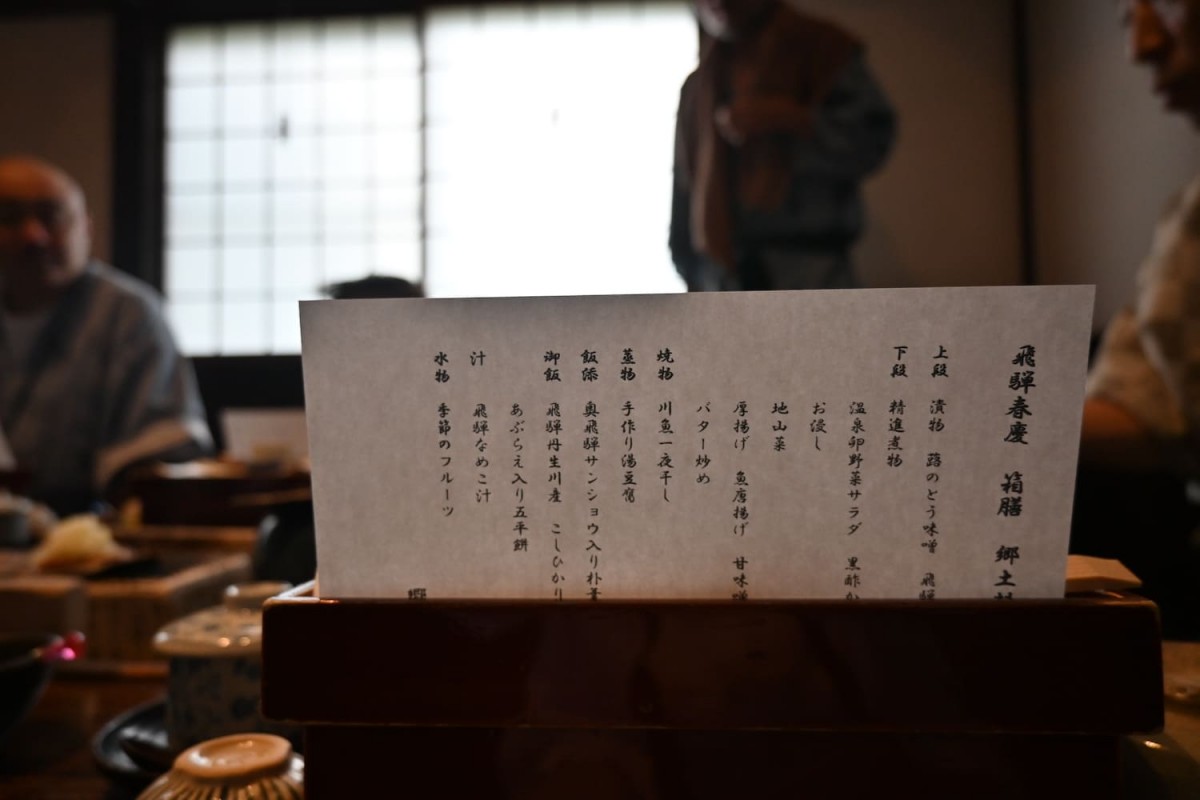 飛騨春慶 箱膳 郷土
上段 漬物 蕗のとう味噌 飛騨
下段 精進煮物
温泉卵野菜サラダ 黒酢か
お浸し
地山菜
厚揚げ 魚唐揚げ 甘味噌
バター炒め
焼物 川魚一夜干し
蒸物 手作り湯豆腐
飯添 奥飛騨サンショウ入り朴葉
御飯 飛騨丹生川産 こしひかり
あぶらえ入り五平餅
汁 飛騨なめこ汁
水物 季節のフルーツ